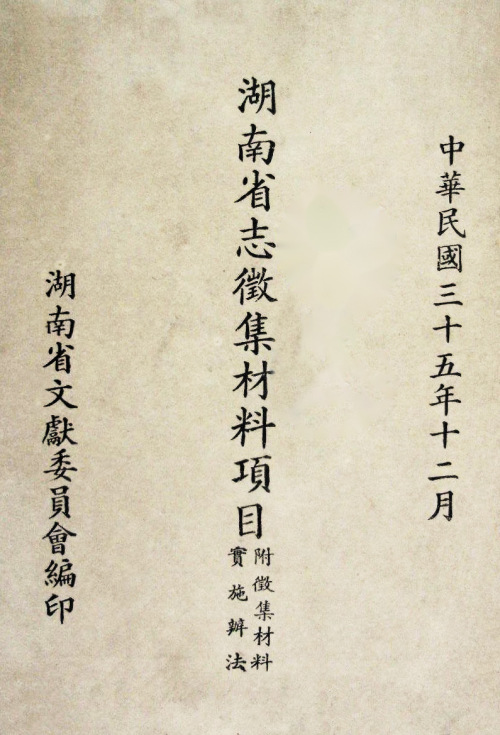 中華民國三十五年十二月
湖南省志徵集材料項目
附徵集材料
實施辦法
湖南省文獻委員會編印